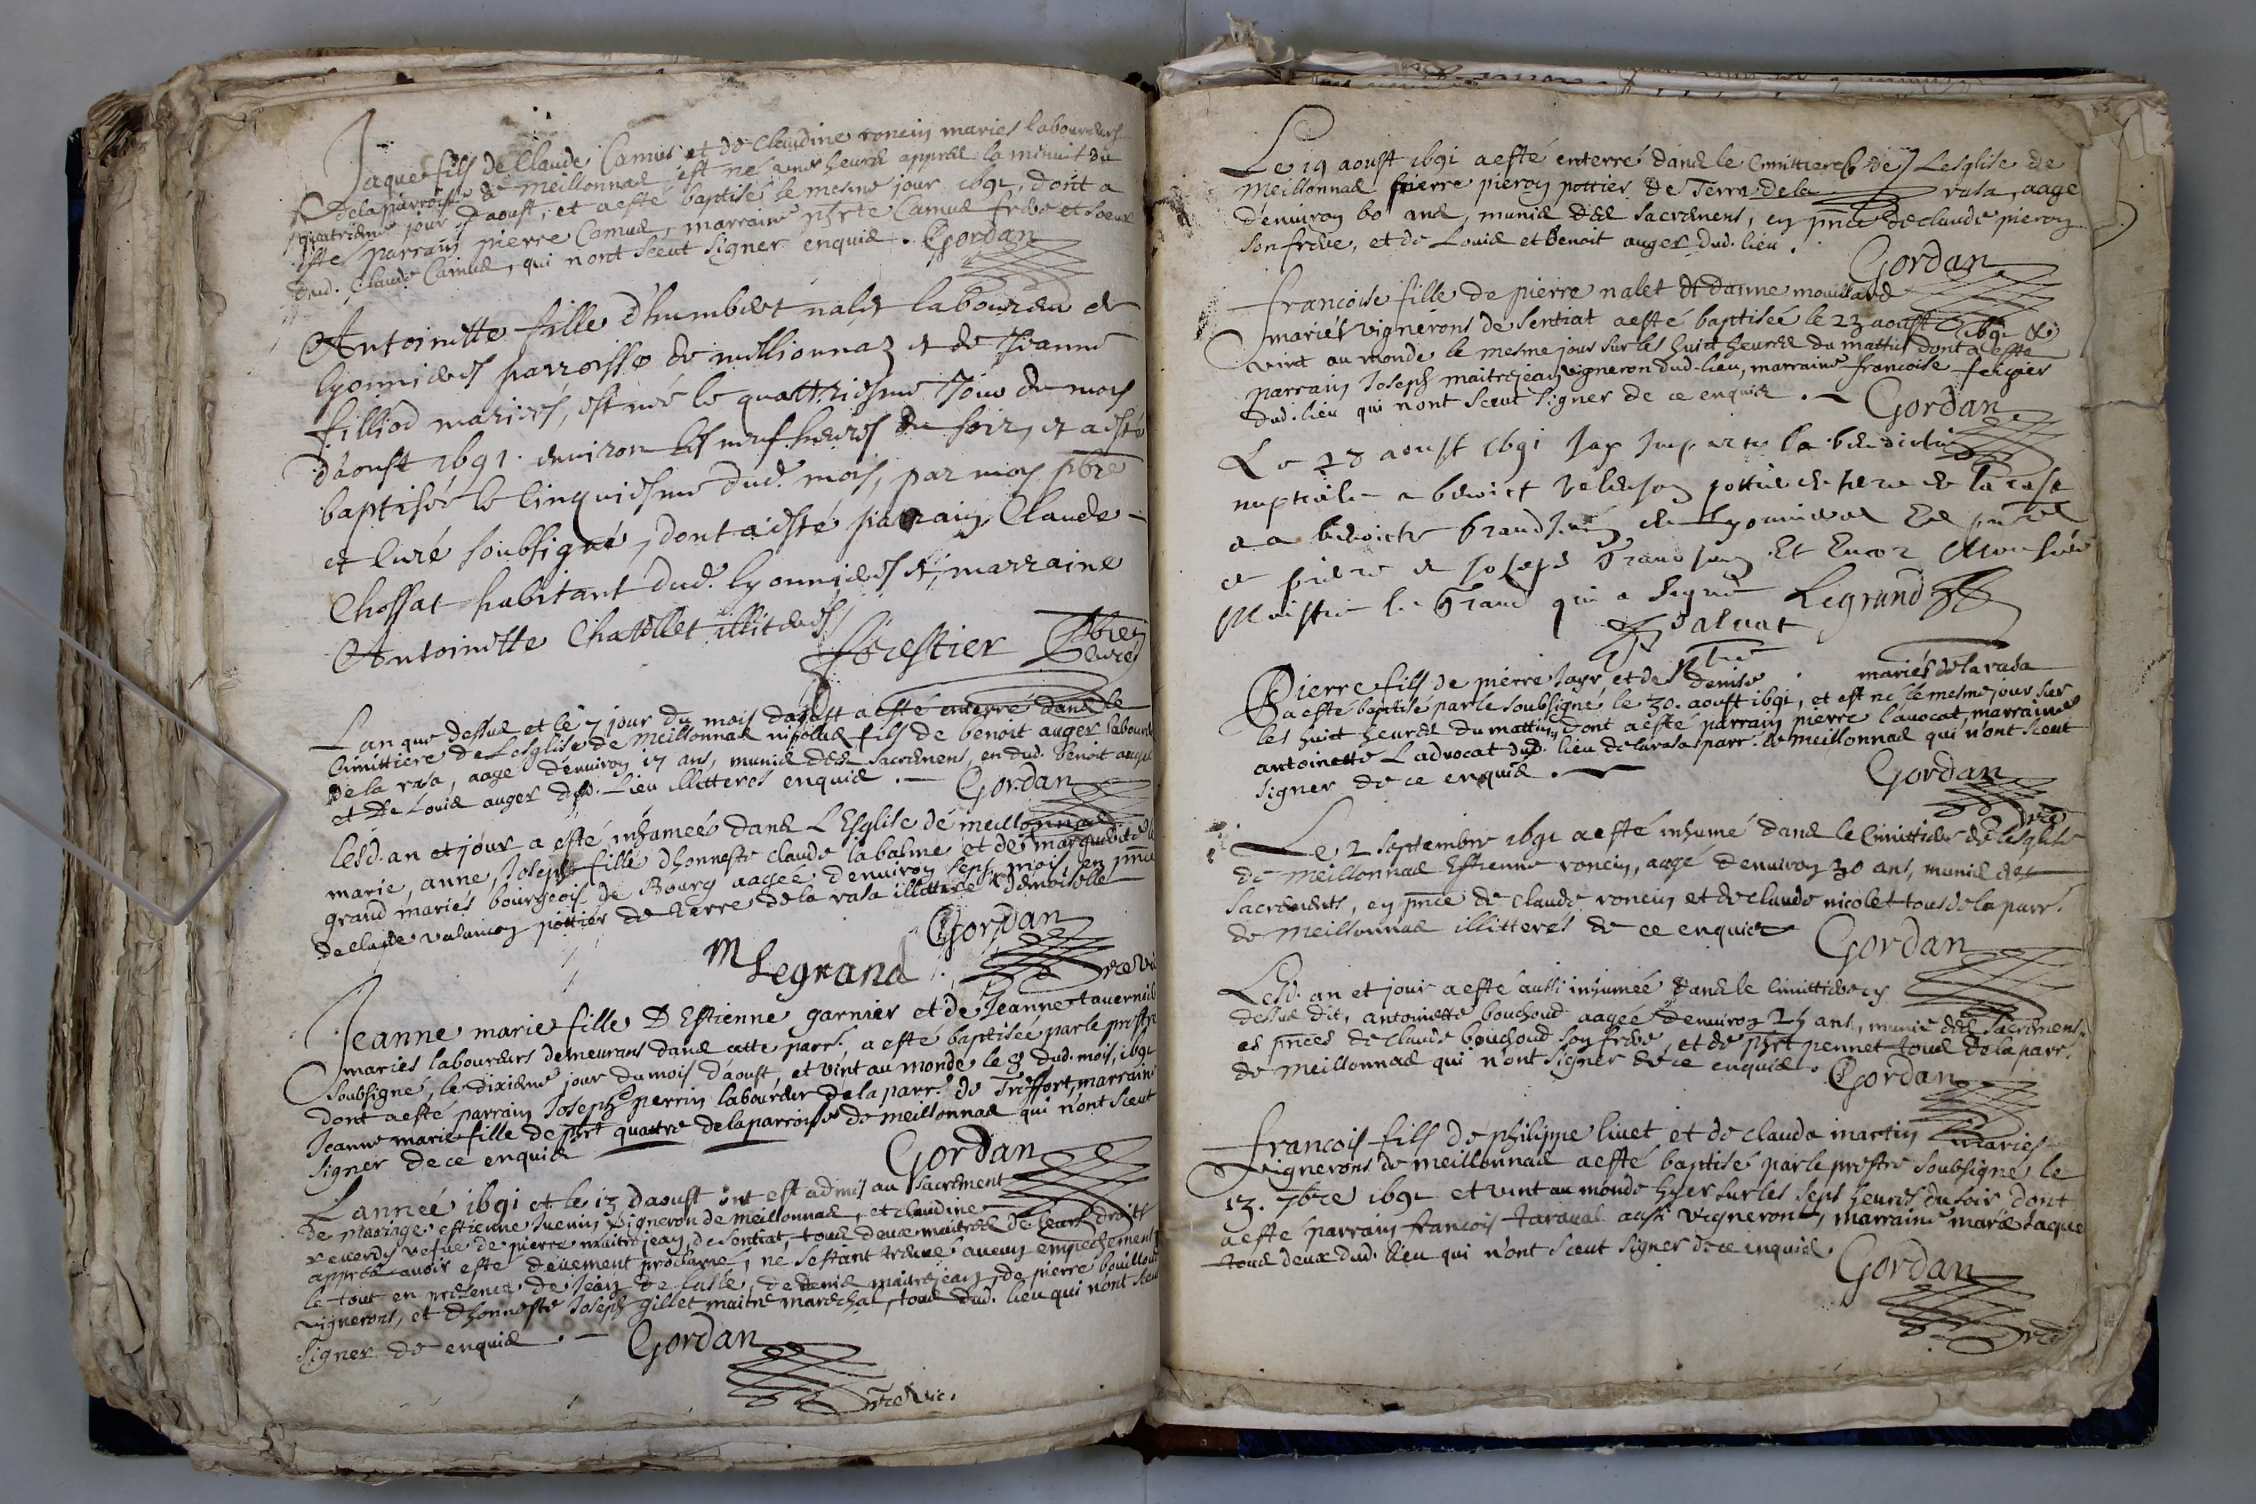 Jaque fils de Claude Camus et de Claudine roncin mariés laboureurs
de la parroisse de meillonnas est né une heure apprés la minuit du
quatrieme jour d'aoust, et a esté baptisé le mesme jour 1691, dont a
esté parrain pierre Camus, marraine Camus frere et soeur
dud. Claude Camus, qui n'ont sceut signer enquis. Gordan
Antoinette fille d'humbert nalet laboureur de
lyonnieres parroisse de millionnaz et de Jeanne
filliod mariés, est née le quattriesme Jour du mois
d'aoust 1691. environ les neuf heures du soir, et a esté
baptisée le Cinquiesme dud. mois, par moy pbre
et Curé soubsigné, dont a esté parrain Claude
Chossat habitant dud. lyonnieres et marraine
Antoinette Chatellet illiteres
forestier pbre
Curé
L an que dessus et le 7 jour du mois daoust a esté enterré dans le
Cimittiere de Lesglise de Meillonnas fils de benoit auger laboureur
de la rasa, aagé denviron 17 ans, munis des sacremens, en dud. benoit auger
et de Louis auger dud. Lieu illitteres enquis. Gordan
lesd. an et jour a esté inhumeés dans L'Esglise de meillonnas
marie, anne, Joseph fille dhonneste claude labalme et de margueritte le
grand mariés bourgeois de Bourg aageé denviron sept mois, en pnce
de claude valancon pottier de terre de la rasa illittere & demoiselle
Gordan
M Legrand
vre Vic
Jeanne marie fille D Estienne garnier et de Jeanne tavernier
mariés laboureurs demeurans dans cette parr. a esté baptisée par le prestre
soubsigné, le dixieme jour du mois daoust, et vint au monde le 8 dud. mois, 1691
dont a esté parrain Joseph perrin laboureur de la parr. de Treffort, marraine
Jeanne marie fille de quatre de la parroisse de meillonnas qui n'ont sceut
signer de ce enquis
Gordan
L'anneé 1691 et le 13 d'aoust ont est admis au sacrement
de Mariage estienne Juenin vigneron de meillonnas, et claudine
reverdy vefue de pierre maitrejean, de sentiat, tous deux maitres de leurs droits
apprés avoir esté deuement proclamé, ne s'estant treuvé aucun empechement
le tout en presence de Jean de lasle, de denis maitrejean, de pierre bouilloud
vignerons, et d'honneste Joseph gillet maitre marechal, tous dud. lieu qui n'ont sceu
signer de enquis. Gordan
vre & vic.
Le 19 aoust 1691 a esté enterré dans le Cimittiere de Lesglise de
Meillonnas pierre pieron pottier de Terre de la rasa, aage
denviron 60 ans, munis des sacremens, en pnce de claude pieron
son frere, et de Louis et benoit auger dud. lieu.
Gordan
francoise fille de pierre nalet et danne mouillard
mariés vignerons de sentiat a esté baptisée le 23 aoust 1691 &
vint au monde le mesme jour sur les huict heures du mattin dont a esté
parrain Joseph maitrejean vigneron dud. lieu, marraine francoise
dud. lieu qui n'ont sceut signer de ce enquis. Gordan
Le 28 aoust 1691 Jay Imparty la benediction
nuptiale a benoict pottier de terre de la rasa
a a benoicte Grandjean de lyonnieres Es pnces
de pierre et Joseph Grandjean Et Encor Monsieur
Maistre le Grand qui a signé Legrand
Saluat
Pierre fils de pierre Jayr et de denise mariés de la rasa
a esté baptisé par le soubsigné le 30. aoust 1691, et est né le mesme jour sur
les huict heures du mattin, dont a esté parrain pierre l'avocat, marraine
antoinette L'advocat dud. lieu de la rasa parr. de meillonnas qui n'ont sceut
signer de ce enquis.
Gordan
vre
Le 2 septembre 1691 a esté inhumé dans le Cimittiere de lesglise
de Meillonnas Estienne roncin, aagé denviron 30 ans, munis des
Sacrements, en pnce de Claude roncin et de claude nicolet tous de la parr.
de Meillonnas illitterés de ce enquis
Gordan
Lesd. an et jour a esté aussi inhumée dans le Cimittiere cy
dessus dit, antoinette bouchoud aageé denviron 25 ans, munie des sacremens
es pnces de claude bouchoud son frere, et de pennet tous de la parr.
de Meillonnas qui n'ont signer de ce enquis. Gordan
francois fils de philippe livet et de claude martin mariés
vignerons de meillonnas a esté baptisé par le prestre soubsigné le
13. 7bre 1691 et vint au monde hyer sur les sept heures du soir dont
a esté parrain francois taraval aussi vigneron, marraine marie Jaque
tous deux dud. lieu qui n'ont sceut signer de ce enquis
Gordan
vre